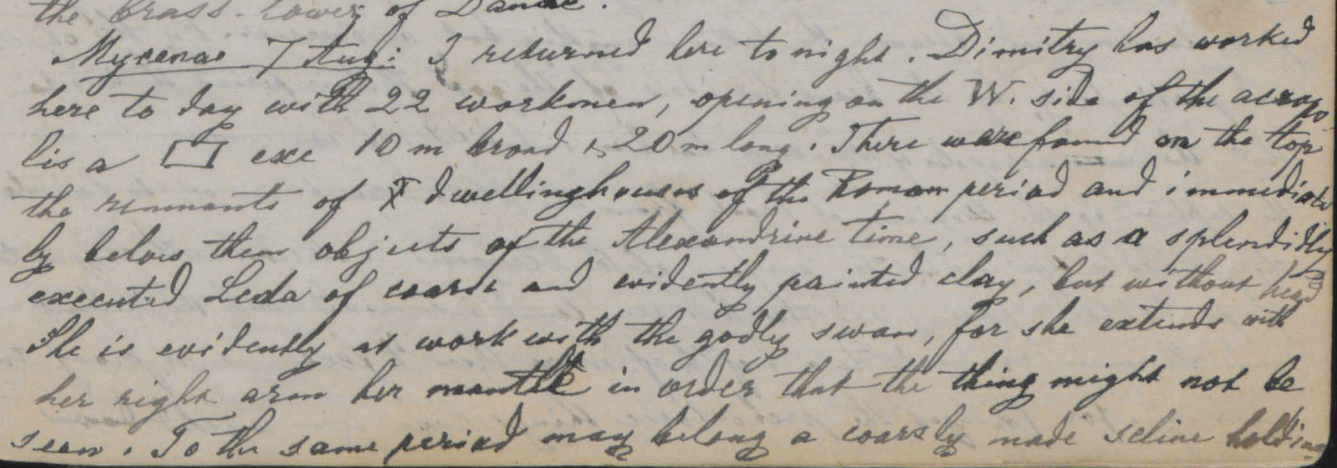 the brass-tower of Danae.
Mycenae 7 Aug: I returned here to night. Dimitry has worked
here to day with 22 workmen, opening on the W. side of the acropo
lis a exc 10 m broad & 20 m long. There were found on the top
the remnants of dwellinghouses of the Roman period and immediate
ly below them objects of the Alexandrine time, such as a splendidly
executed Leda of coarse and evidently painted clay, but without head
She is evidently at work with the godly swan, for she extends with
her right arm her mantle in order that the thing might not be
seen. To the same period may belong a coarsly made holding